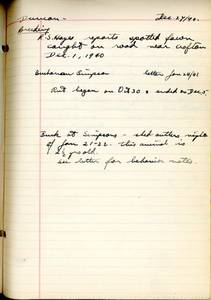 Duncan - Dec 27/40.
Breeding
R.S. Hayes reports spotted fawn
caught on road near Crofton
Dec. 1, 1940
Buchanan Simpson letter Jan 28/41
Rut began on Oct 30 & ended on Dec 5
Buck at Simpsons - shed antlers night
of Jan 21-22. This animal is
2½ yrs old.
See letter for behavior notes.